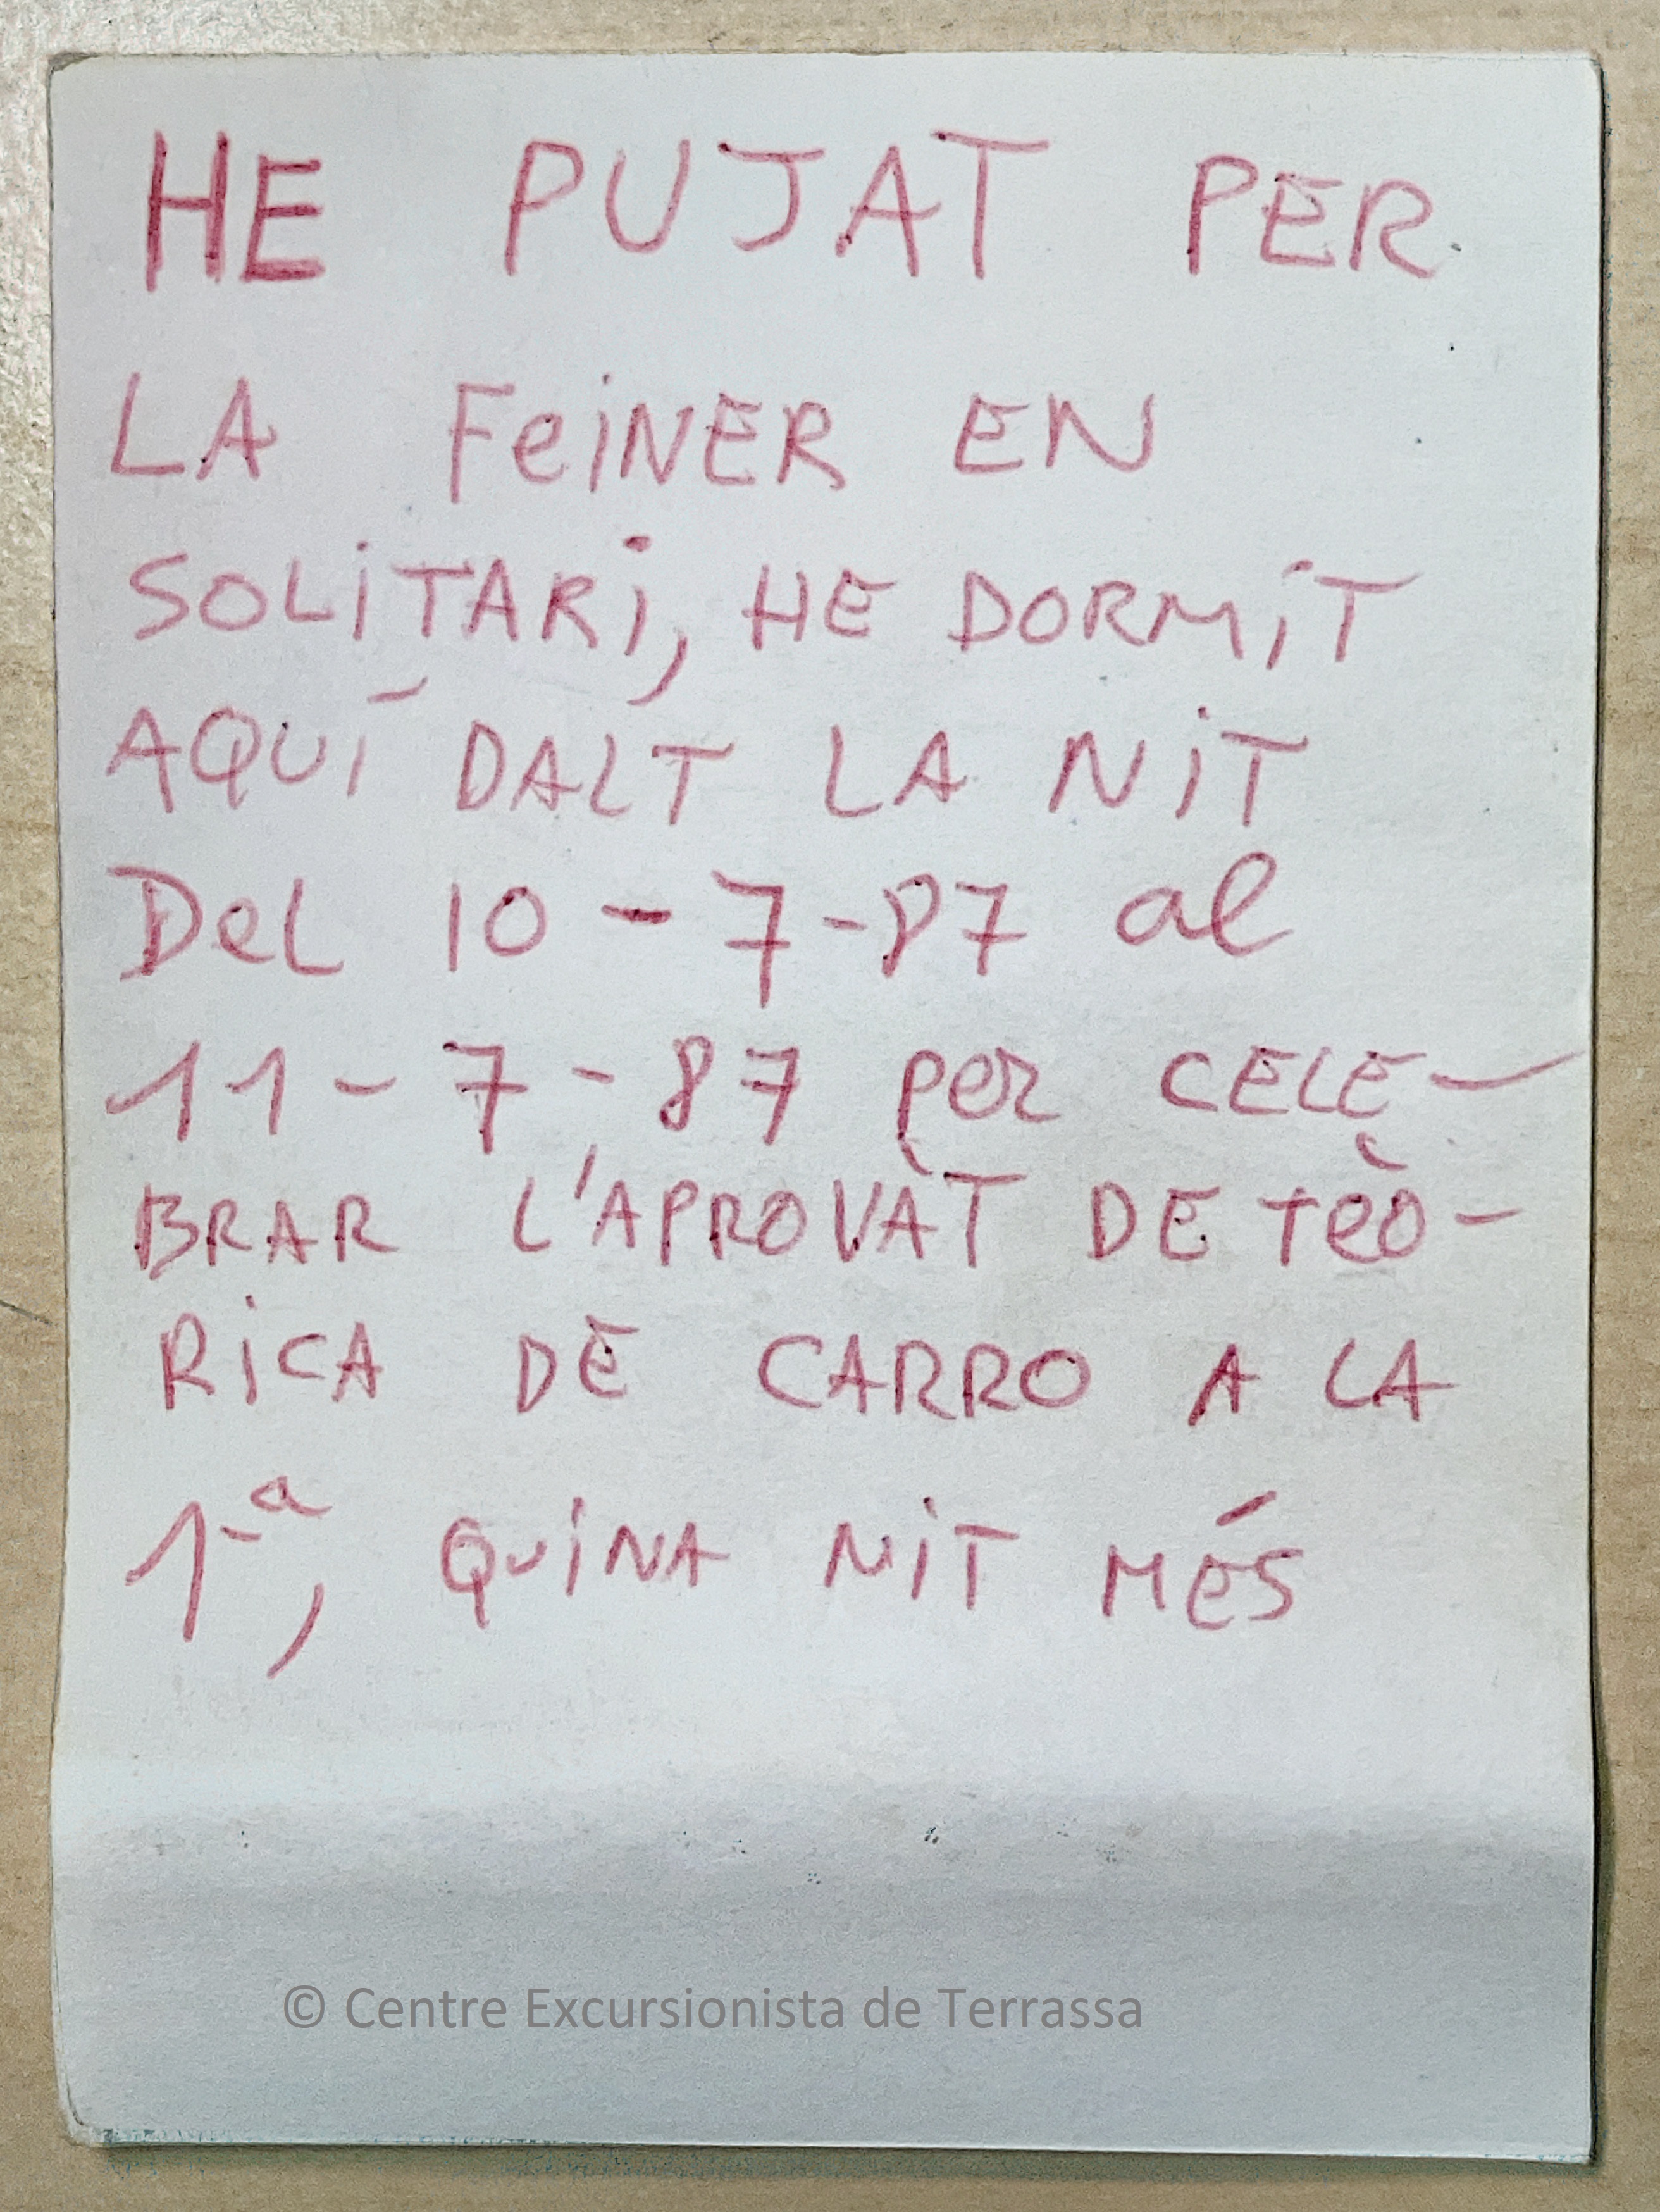 HE PUJAT PER
LA FeiNER EN
SOLiTARi, HE DORMiT
AQUÍ DALT LA NiT
DeL 10-7-87 al
11-7-87 per CELE-
BRAR L'APROVAT DE TEÒ-
RiCA DE CARRO A LA
1ª, QUiNA NiT MÉS
© Centre Excursionista de Terrassa